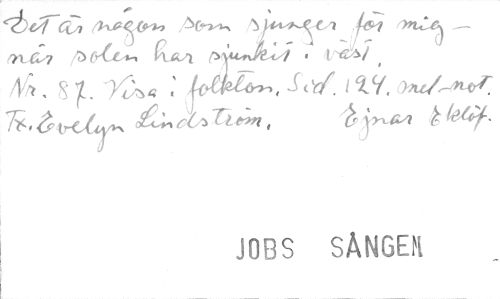 Det är någon som sjunger för mig —
när solen har sjunkit i väst.
Nr. 87. Visa i folkton. Sid. 124. mel-not.
Tx. Evelyn Lindström. Ejnar Eklöf.
JOBS SÅNGEN